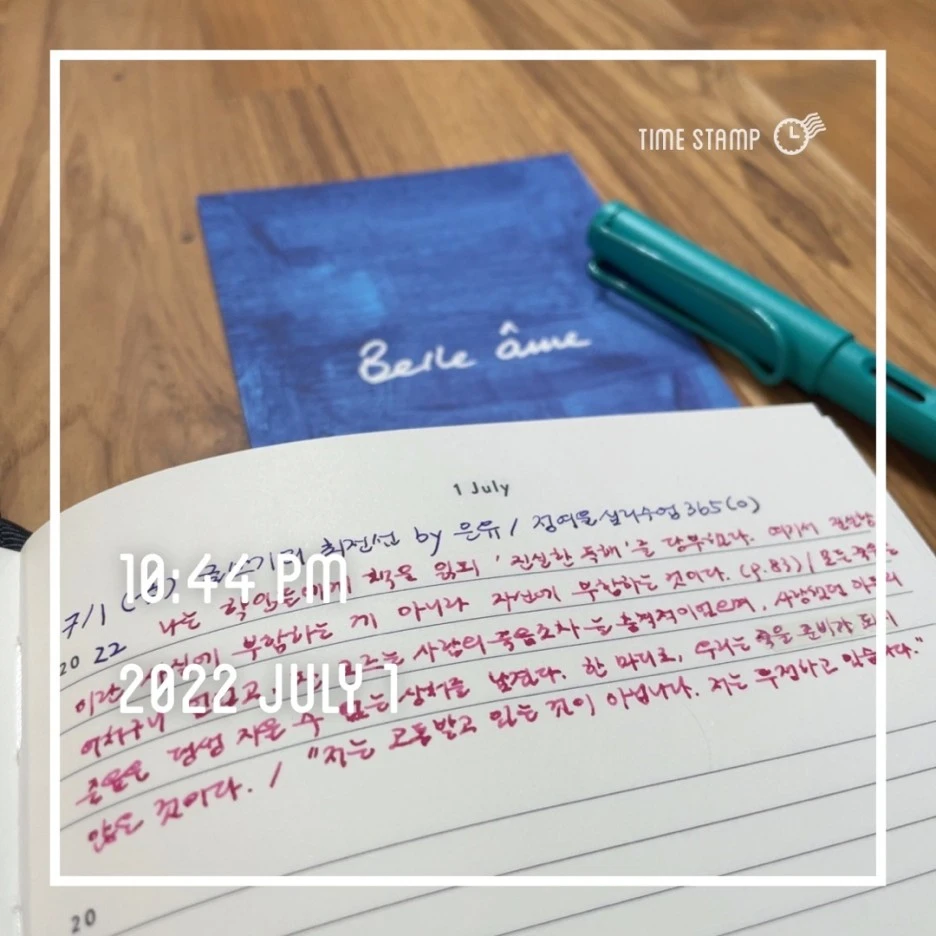 TIME STAMP
Belle âme
1 July
7/1 글쓰기의 최전선 by 은유 / 정여울 심리수업 365(0)
나는 학인들에게 책을 읽되 '진실한 독해'를 당부한다. 여기서 진실함
20 22
이란 자신에게 부합하는 게 아니라 자신에게 부합하는 것이다. (p.83) / 모든 죽음은
10:44 PM
사람의 죽음조차 충격적이었으며, 사랑했던
2022 JULY 1
죽음은 평생 지울 수 없는 상처를 남겼다. 한 마디로, 우리는 죽을 준비가 되지
않은 것이다. / "저는 고통받고 있는 것이 아닙니다. 저는 투쟁하고 있습니다."
20